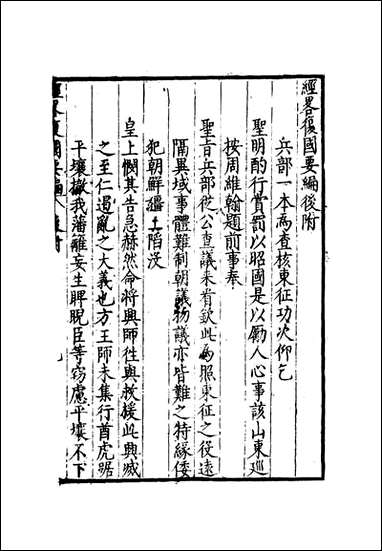 經畧復國要編後附
兵部一本為查核東征功次仰乞
聖明酌行賞罰以昭國是以勵人心事該山東廵
按周維翰題前事奉
聖旨兵部從公查議来看欽此為照東征之役遠
隔異域事體難制朝議物議亦皆難之特緣倭
犯朝鮮疆土陷没
皇上憫其告急赫然命將興師徃與救援此興滅
之至仁遏亂之大義也方王師未集行酋虎踞
平壤撤我藩籬妄生睥睨臣等竊慮平壤不下